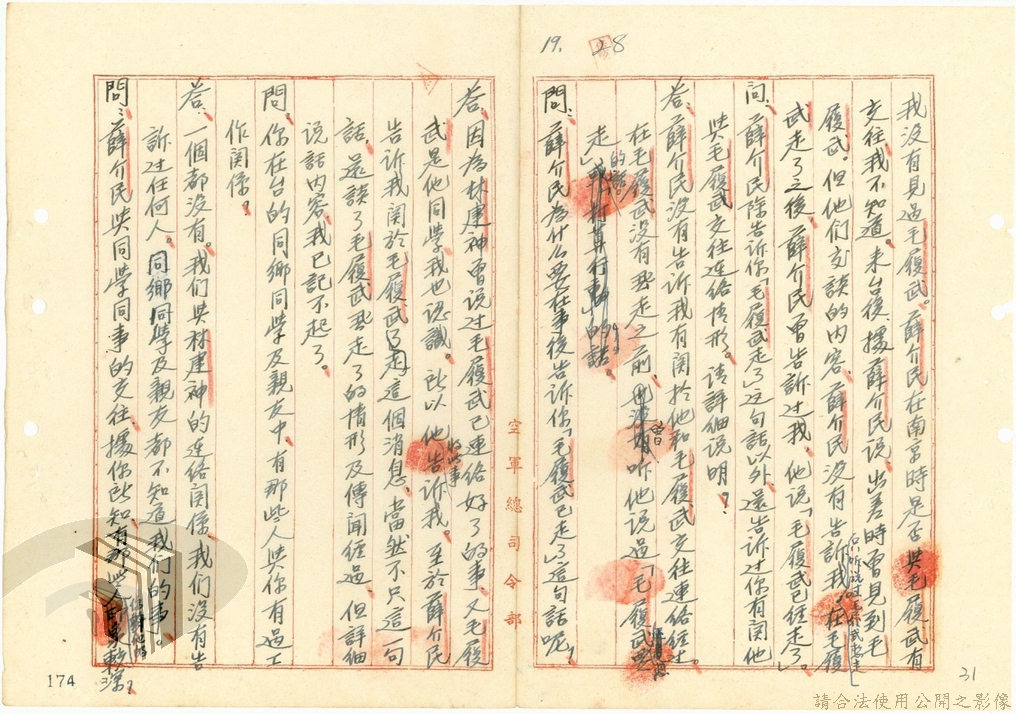 19.
28
我没有見過毛履武。薛介民在南京時是否與毛履武有
交往,我不知道。来台後,據薛介民说,出差時曾見到毛
履武。但他们交談的内容,薛介民没有告訴我,在毛履
武走了之後,薛介民曾告訴过我,他说「毛履武已經走了。」
问:薛介民除告訴你「毛履武走了」这句話以外還告訴过你有関他
與毛履武交往連絡情形。请詳細说明?
答:薛介民没有告訴我有関於他和毛履武交往連絡經过。
在毛履武没有飛走之前,也没有听他说過「毛履武要
走」的話。
問:薛介民為什么要在事後告訴你「毛履武已走了」這句話呢?
31
空軍總司令部
答:因為林建神曾说过毛履武已連絡好了的事,又毛履
武是他同学我也認識。所以他将此事告訴我。至於薛介民
告訴我関於毛履武飛走了這個消息,當然不只這一句
話,還談了毛履武飛走了的情形及傳聞經過,但詳細
说話内容我已記不起了。
問:你在台的同鄉同学及親友中有那些人與你有過工
作関係?
答:一個都没有。我们與林建神的連絡関係,我们没有告
訴过任何人。同鄉同學及親友都不知道我们的事。
問:薛介民與同学同事的交往,據你所知有那些人
174
請合法使用公開之影像